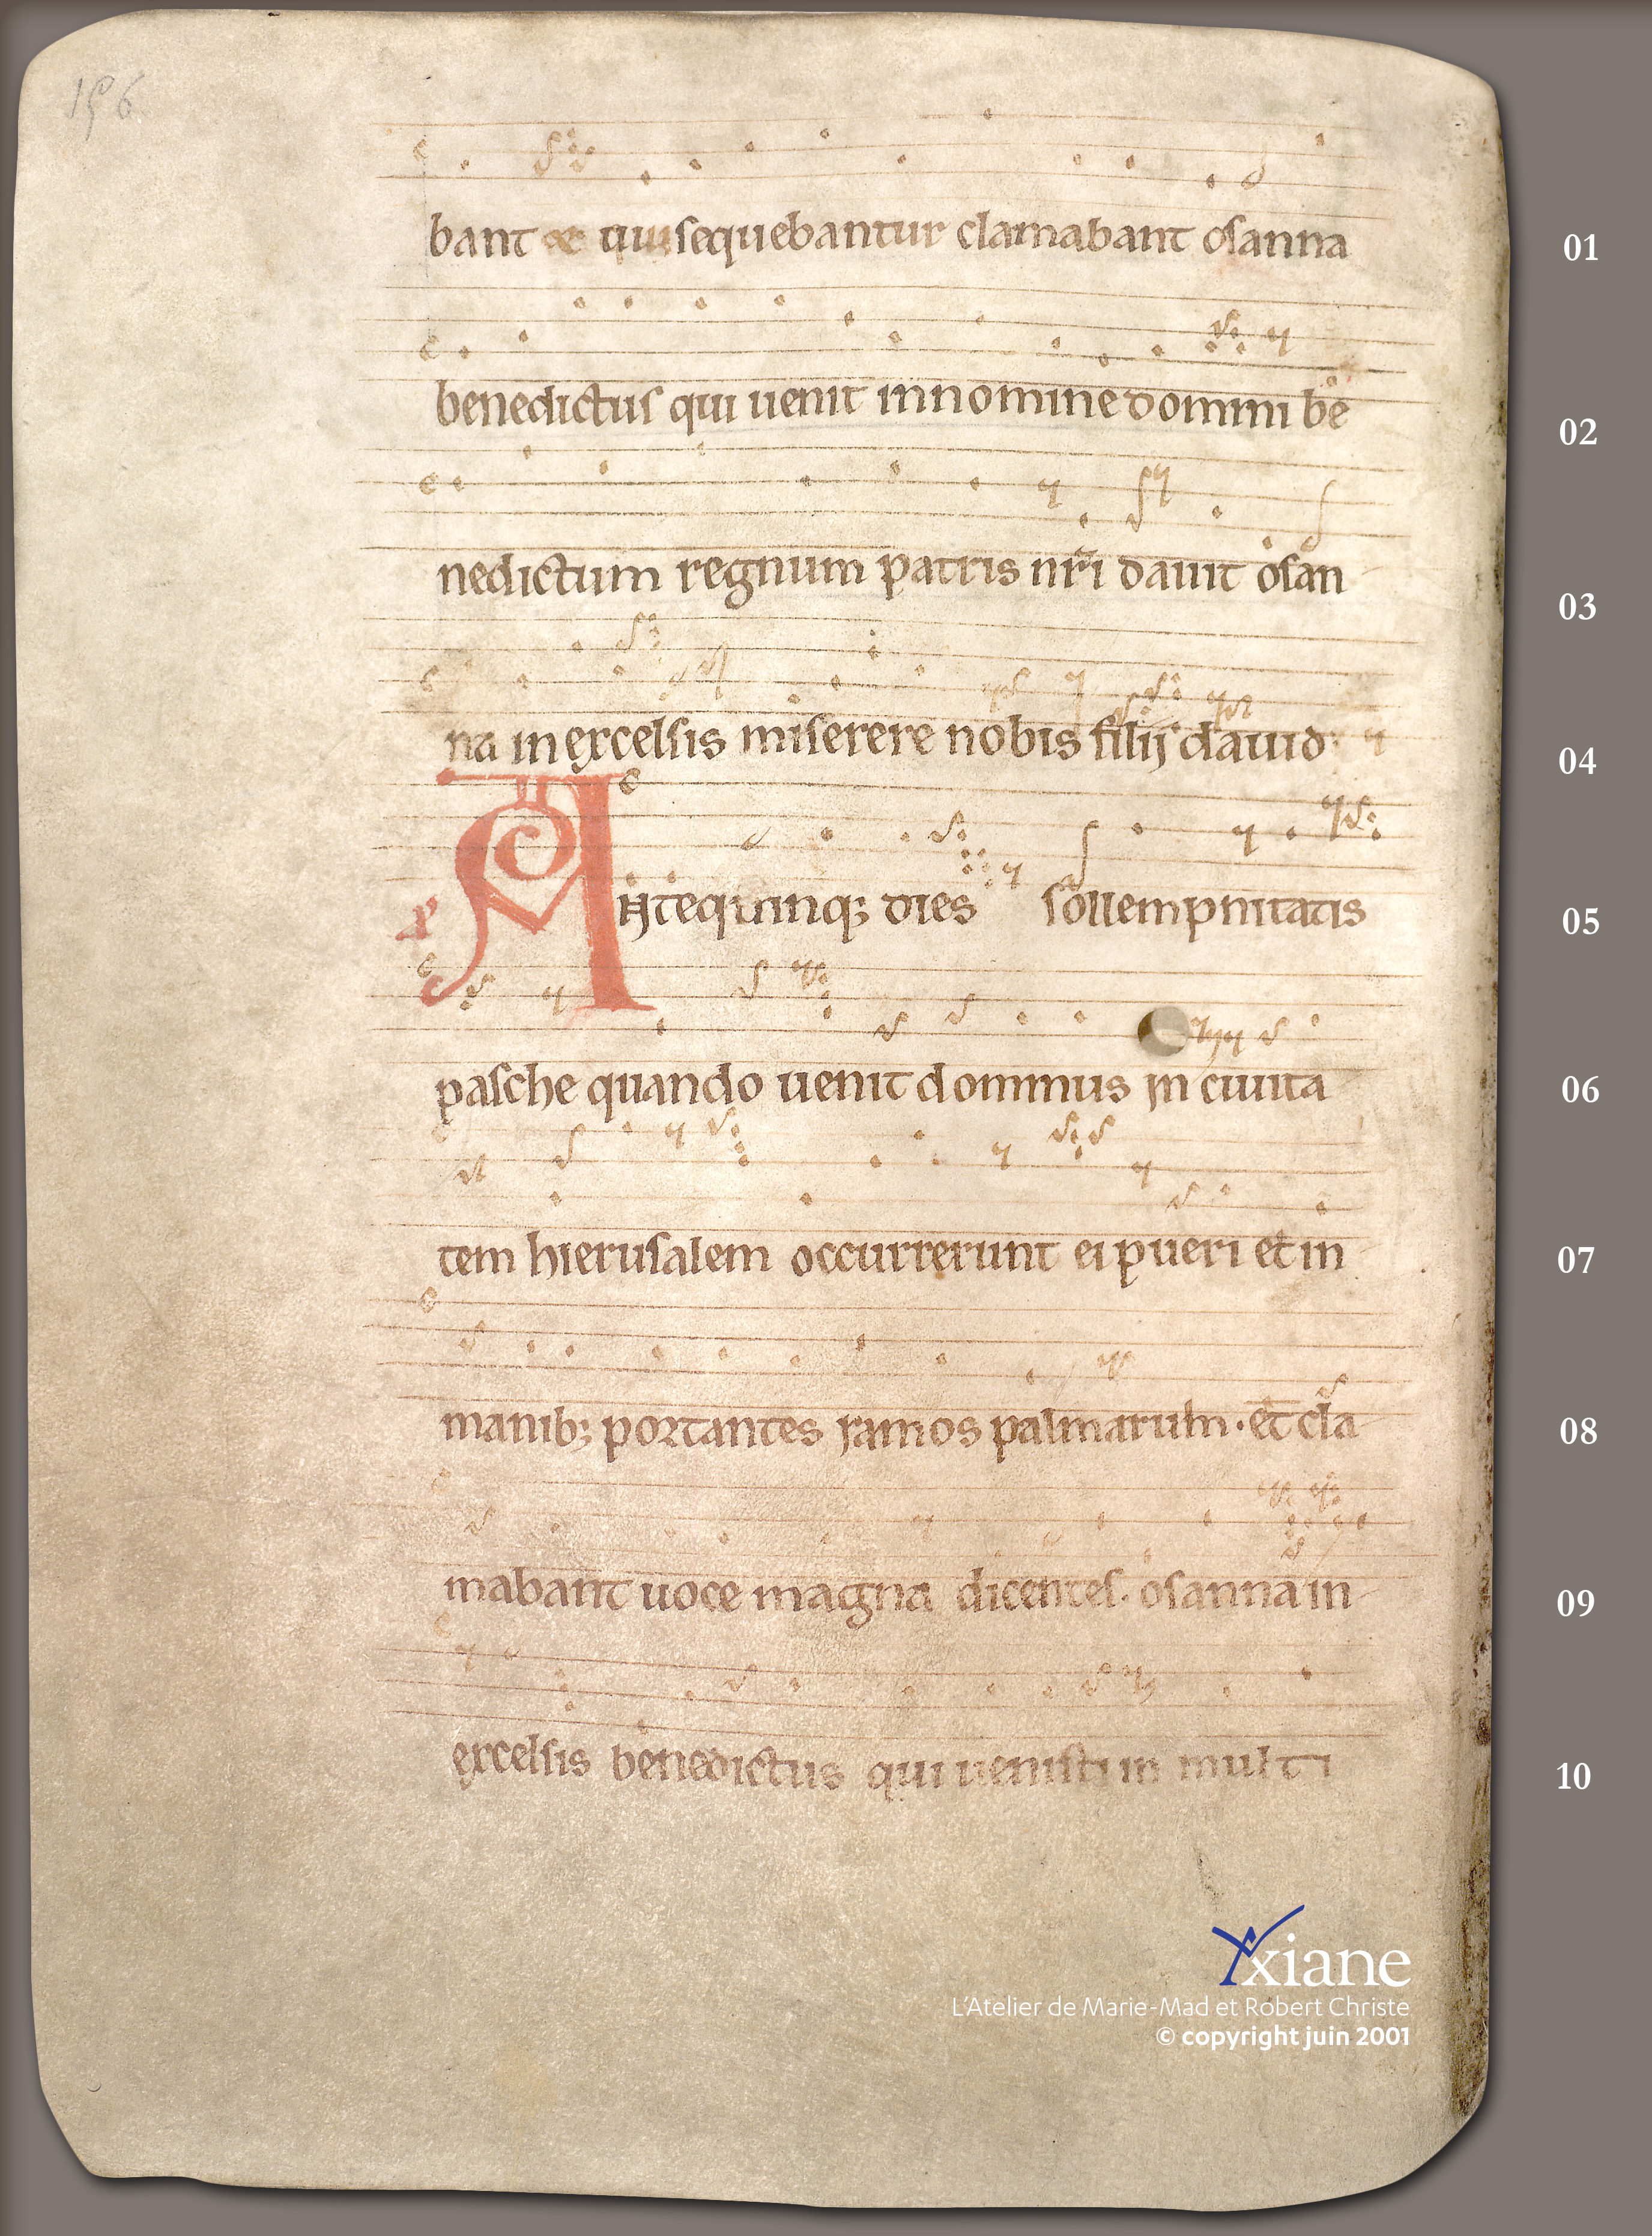 156
bant et qui sequebantur clamabant osanna 01
benedictus qui uenit innomine domini be 02
nedictum regnum patris nr̄i dauit osan 03
na in excelsis miserere nobis filij dauid 04
Antequinq; dies sollempnitatis 05
pasche quando uenit dominus in ciuita 06
tem hierusalem occurrerunt ei pueri et in 07
manib; portantes ramos palmarum · et cla 08
mabant uoce magna dicentes · osanna in 09
excelsis benedictus qui uenisti in multi 10
Axiane
L'Atelier de Marie-Mad et Robert Christe
© copyright juin 2001